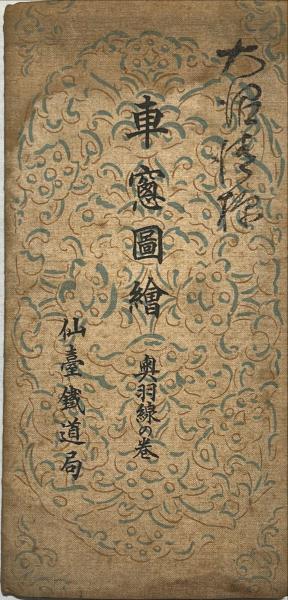 大沼清隆
車窓圖繪
奥羽線の巻
仙臺鐵道局